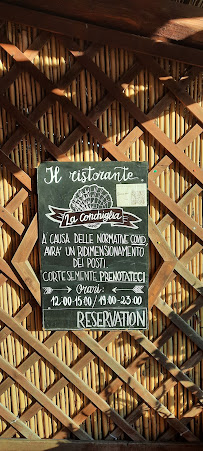 Il ristorante
La Conchiglia
A CAUSA DELLE NORMATIVE COVID
AVRA' UN RIDIMENSIONAMENTO
DEI POSTI.
CORTESEMENTE PRENOTATECI
Orari:
12:00-15:00 / 19:00-23:00
RESERVATION